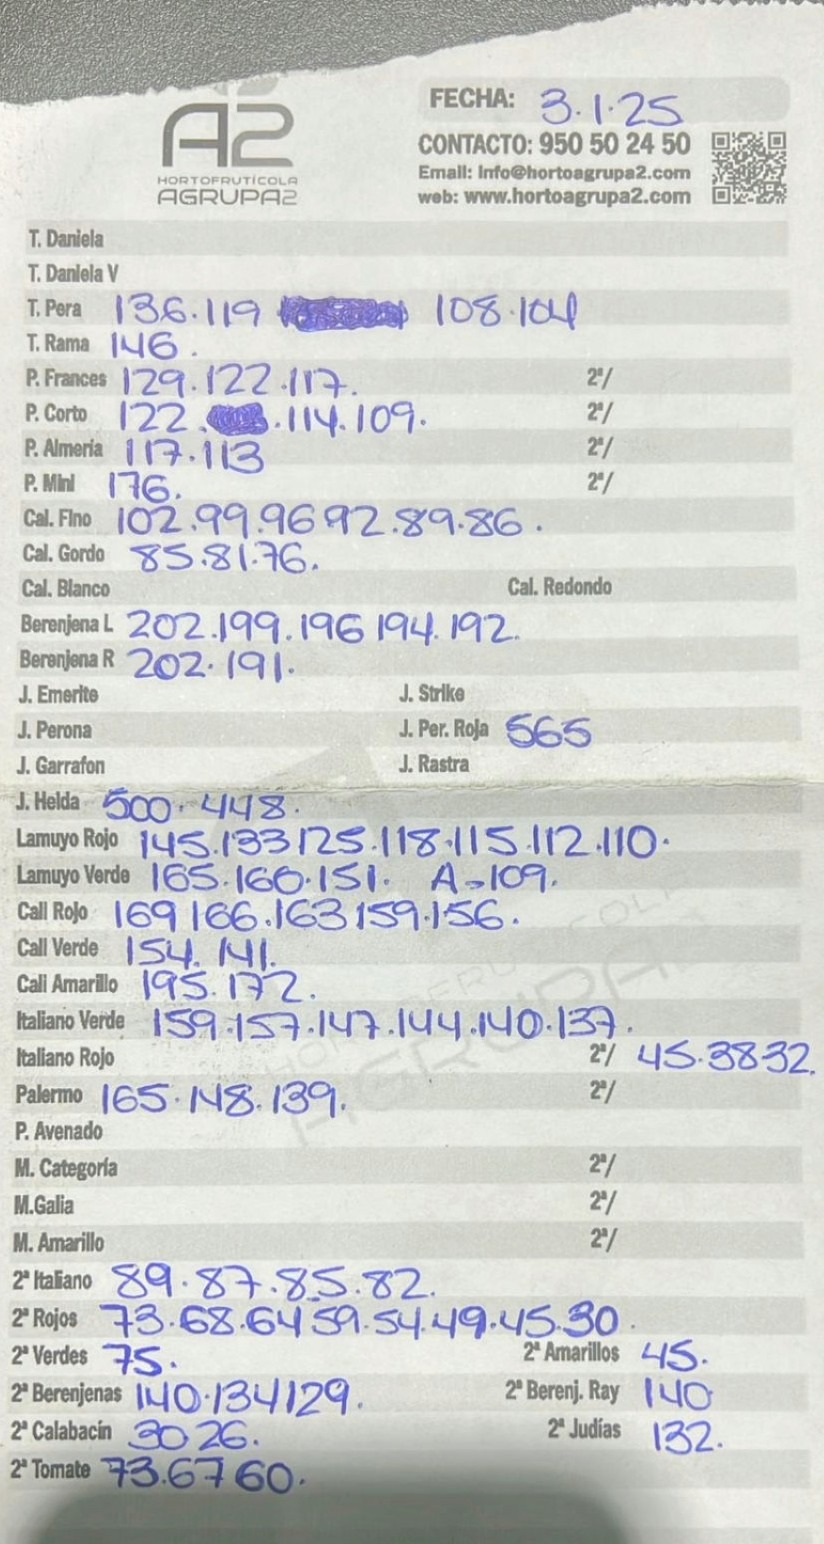 A2
HORTOFRUTÍCOLA
AGRUPA2
FECHA: 3.1.25
CONTACTO: 950 50 24 50
Email: Info@hortoagrupa2.com
web: www.hortoagrupa2.com
T. Daniela
T. Daniela V
T. Pera 136.119 108.104
T. Rama 146.
P. Frances 129.122.117. 2ª/
P. Corto 122. .114.109. 2ª/
P. Almería 117.113 2ª/
P. Mini 176. 2ª/
Cal. Fino 102.99.96 92.89.86.
Cal. Gordo 85.81.76.
Cal. Blanco Cal. Redondo
Berenjena L 202.199.196 194.192.
Berenjena R 202.191.
J. Emerite J. Strike
J. Perona J. Per. Roja 565
J. Garrafon J. Rastra
J. Helda 500.448.
Lamuyo Rojo 145.133 125.118.115.112.110.
Lamuyo Verde 165.160.151. A-109.
Cali Rojo 169 166.163 159.156.
Cali Verde 154. 141.
Cali Amarillo 195.172.
Italiano Verde 159.157.147.144.140.137.
Italiano Rojo 2ª/ 45.38 32.
Palermo 165.148.139. 2ª/
P. Avenado
M. Categoría 2ª/
M.Galia 2ª/
M. Amarillo 2ª/
2ª Italiano 89.87.85.82.
2ª Rojos 73.68.64 59.54.49.45.30.
2ª Verdes 75. 2ª Amarillos 45.
2ª Berenjenas 140.134 129. 2ª Berenj. Ray 140
2ª Calabacín 30 26. 2ª Judías 132.
2ª Tomate 73.67 60.